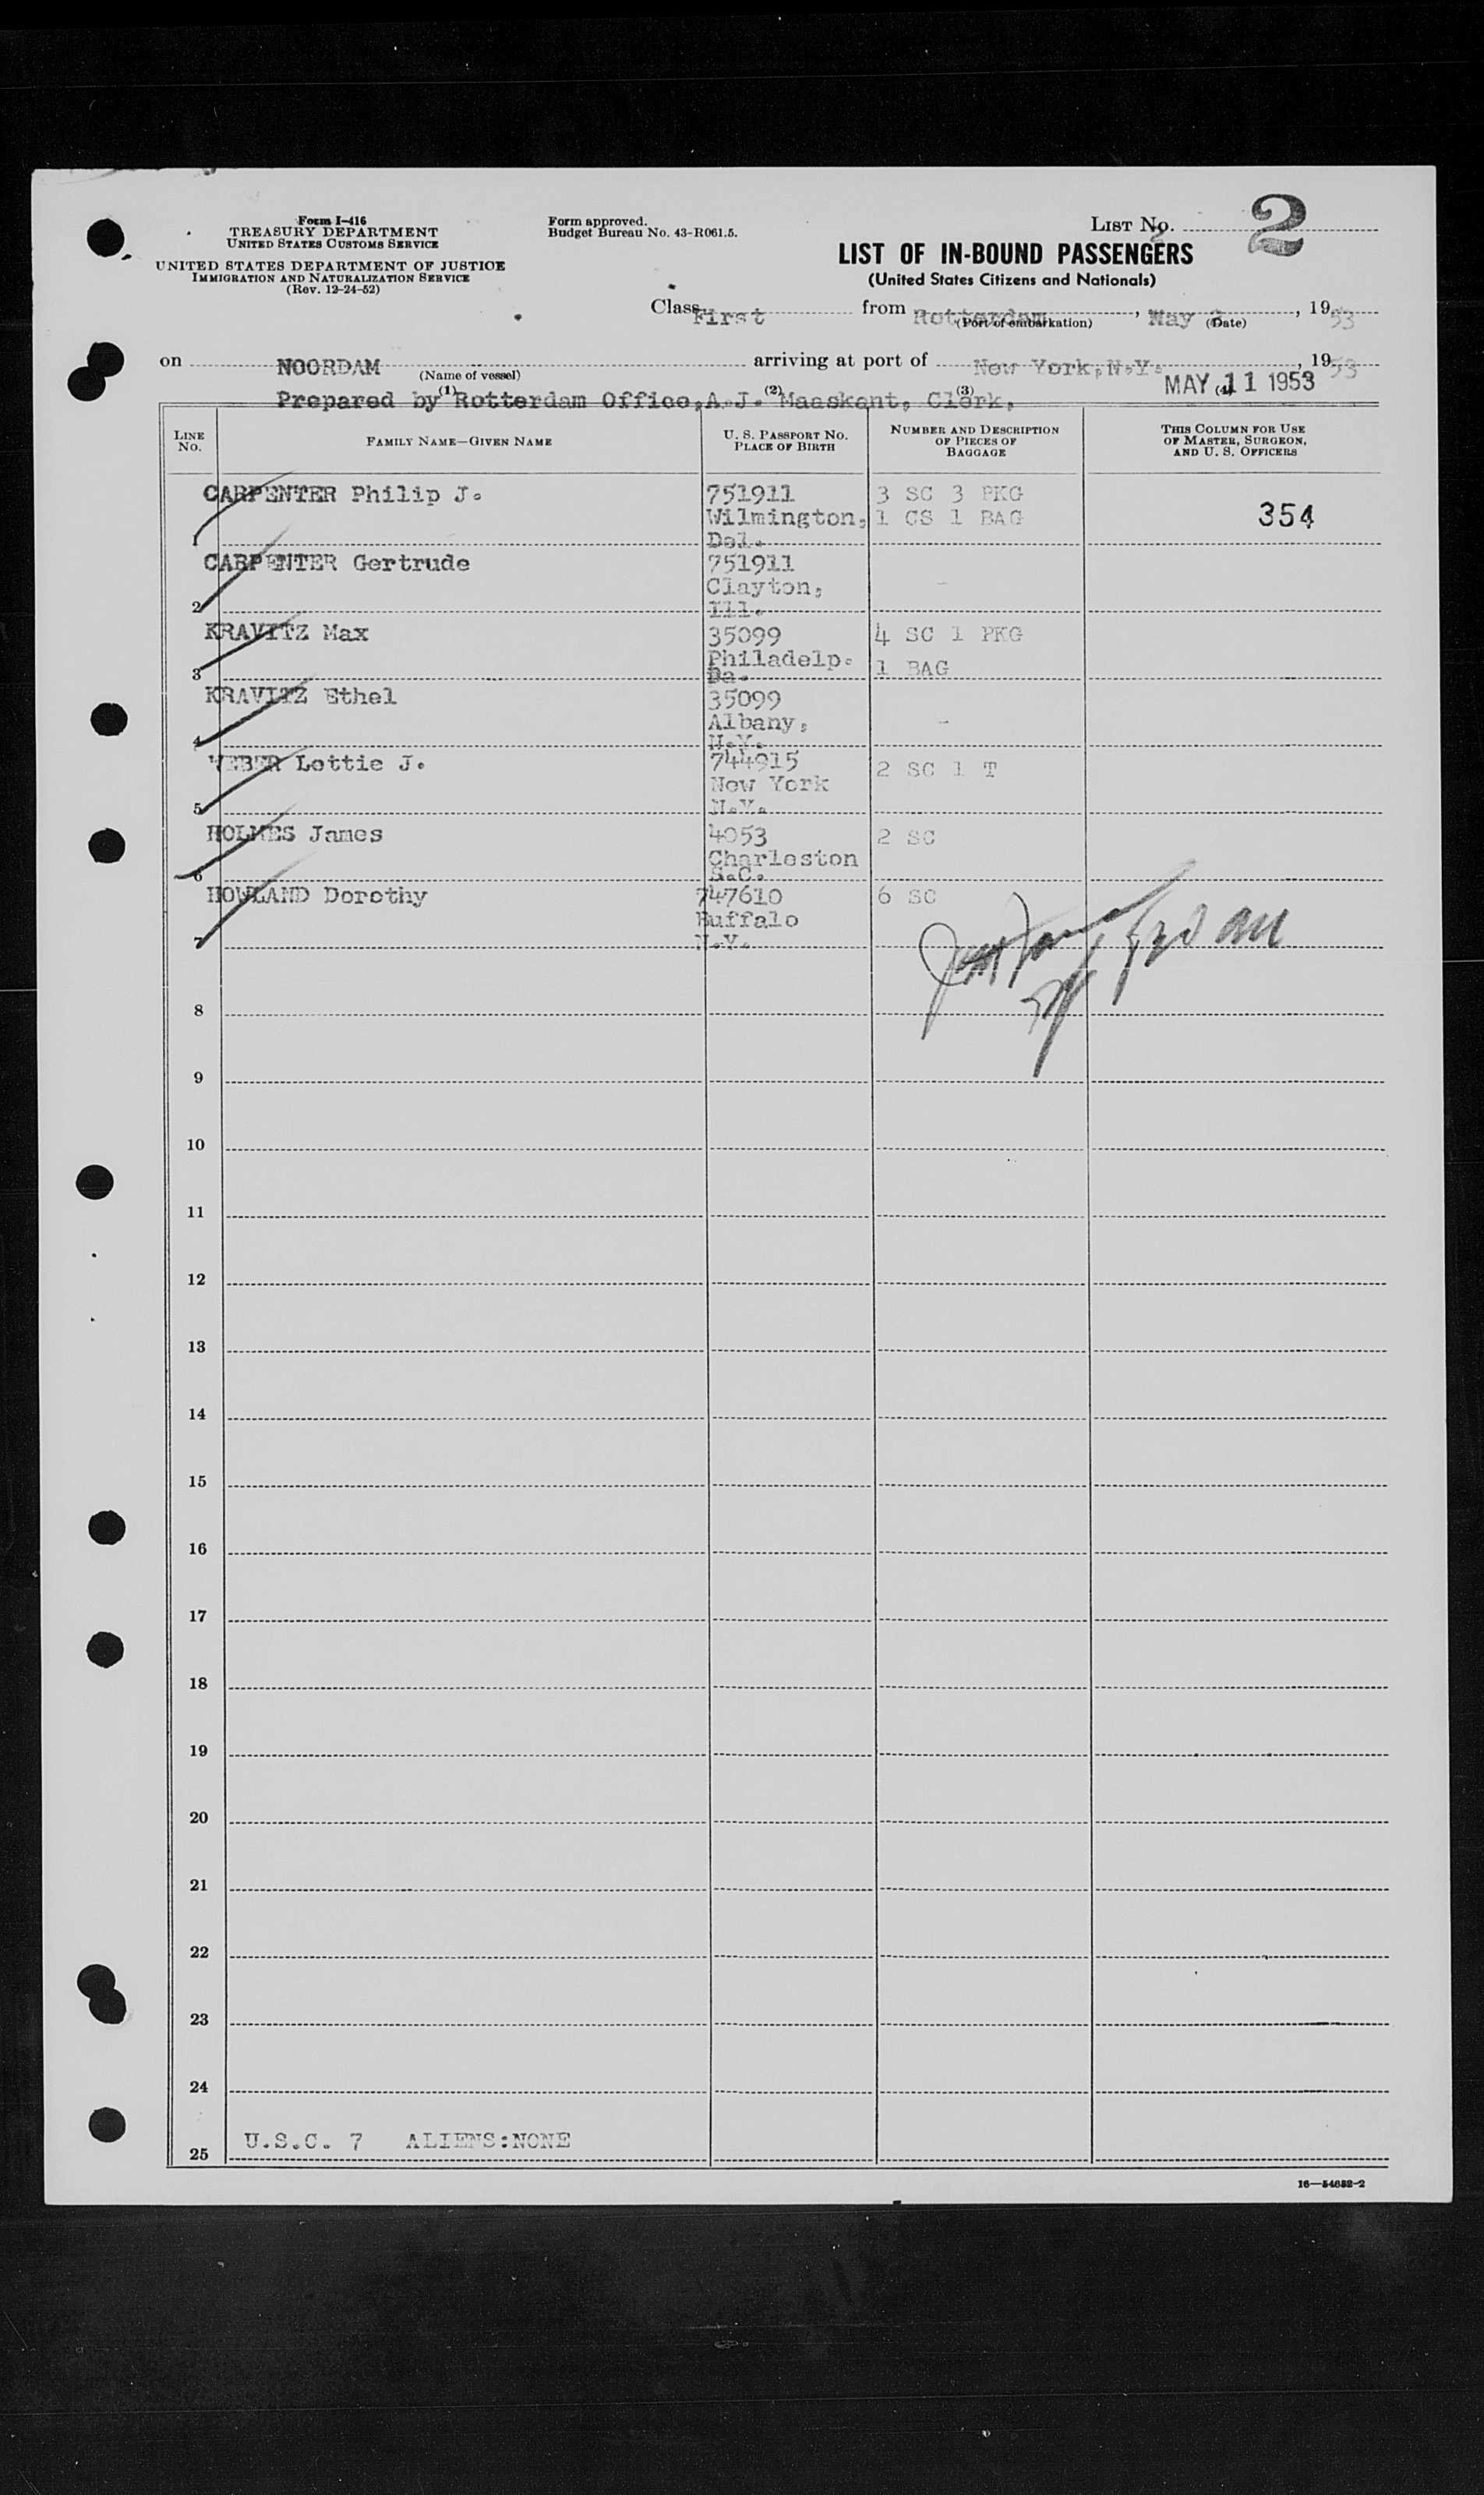 Form I-416
TREASURY DEPARTMENT
UNITED STATES CUSTOMS SERVICE
UNITED STATES DEPARTMENT OF JUSTICE
IMMIGRATION AND NATURALIZATION SERVICE
(Rev. 12-24-52)
Form approved.
Budget Bureau No. 43-R061.5.
LIST No. 2
2
LIST OF IN-BOUND PASSENGERS
(United States Citizens and Nationals)
Class First from Rotterdam, May, 1953
(Port of embarkation) (Date)
on NOORDAM arriving at port of New York, N.Y., 1953
(Name of vessel)
MAY 11 1953
Prepared by Rotterdam Office, A.J. Maaskant, Clerk,
(1) (2) (3) (4)
LINE No.
FAMILY NAME—GIVEN NAME
U. S. PASSPORT NO.
PLACE OF BIRTH
NUMBER AND DESCRIPTION
OF PIECES OF
BAGGAGE
THIS COLUMN FOR USE
OF MASTER, SURGEON,
AND U. S. OFFICERS
CARPENTER Philip J. 751911 3 SC 3 PKG
Wilmington, 1 CS 1 BAG 354
1 Del.
CARPENTER Gertrude 751911
Clayton, -
2 Ill.
KRAVITZ Max 35099 4 SC 1 PKG
Philadelp. 1 BAG
3 Pa.
KRAVITZ Ethel 35099
Albany, -
4 N.Y.
WEBER Lottie J. 744915 2 SC 1 T
New York
5 N.Y.
HOLMES James 4053 2 SC
Charleston
6 S.C.
HOWLAND Dorothy 747610 6 SC
Buffalo
7 N.Y.
8
9
10
11
12
13
14
15
16
17
18
19
20
21
22
23
24
25 U.S.C. 7 ALIENS:NONE
16—54652-2